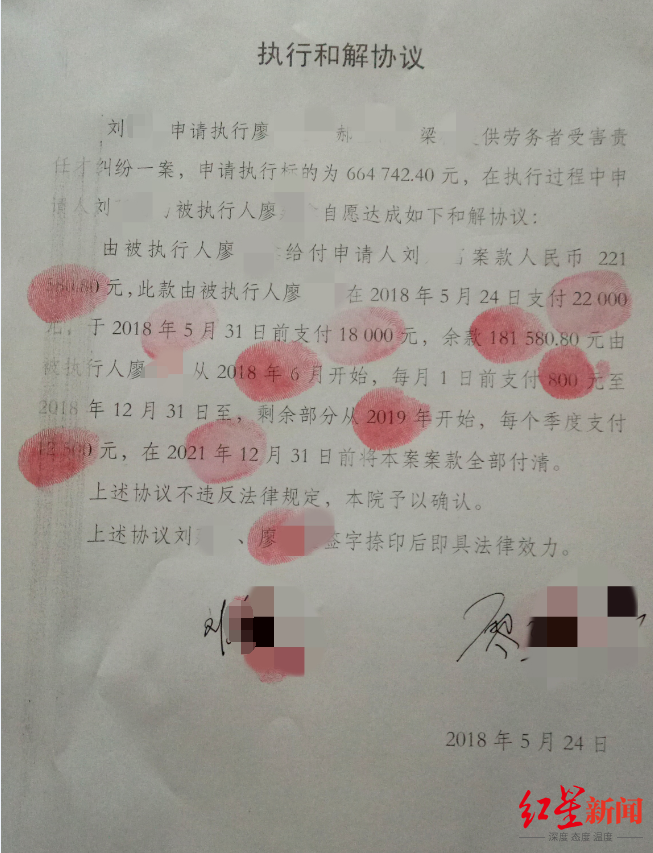 执行和解协议
刘 申请执行廖 郝 梁 供劳务者受害责
任 纠纷一案，申请执行标的为 664 742.40 元，在执行过程中申
请人刘 被执行人廖 自愿达成如下和解协议：
由被执行人廖 给付申请人刘 案款人民币 221
580.80 元，此款由被执行人廖 在 2018 年 5 月 24 日支付 22 000
元，于 2018 年 5 月 31 日前支付 18 000 元，余款 181 580.80 元由
被执行人廖 从 2018 年 6 月开始，每月 1 日前支付 800 元至
2018 年 12 月 31 日至，剩余部分从 2019 年开始，每个季度支付
元，在 2021 年 12 月 31 日前将本案案款全部付清。
上述协议不违反法律规定，本院予以确认。
上述协议刘 、廖 签字捺印后即具法律效力。
刘
廖
2018 年 5 月 24 日
红星新闻
深度·态度·温度